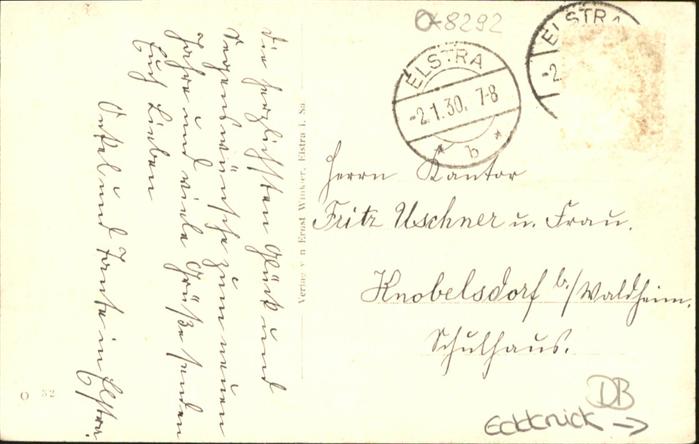 Die herzlichsten Glück und
Segenswünsche zum neuen
Jahre und viele Grüße senden
Euch Lieben
Onkel und Tante in Elstra.
O 52
Verlag v n Ernst Winkler, Elstra i. Sa
O-8292
ELSTRA
-2.1.30. 7-8
* b *
ELSTRA
-2.
Herrn Kantor
Fritz Uschner u. Frau.
Knobelsdorf b/Waldheim.
Schulhaus.
DB
Eckknick →